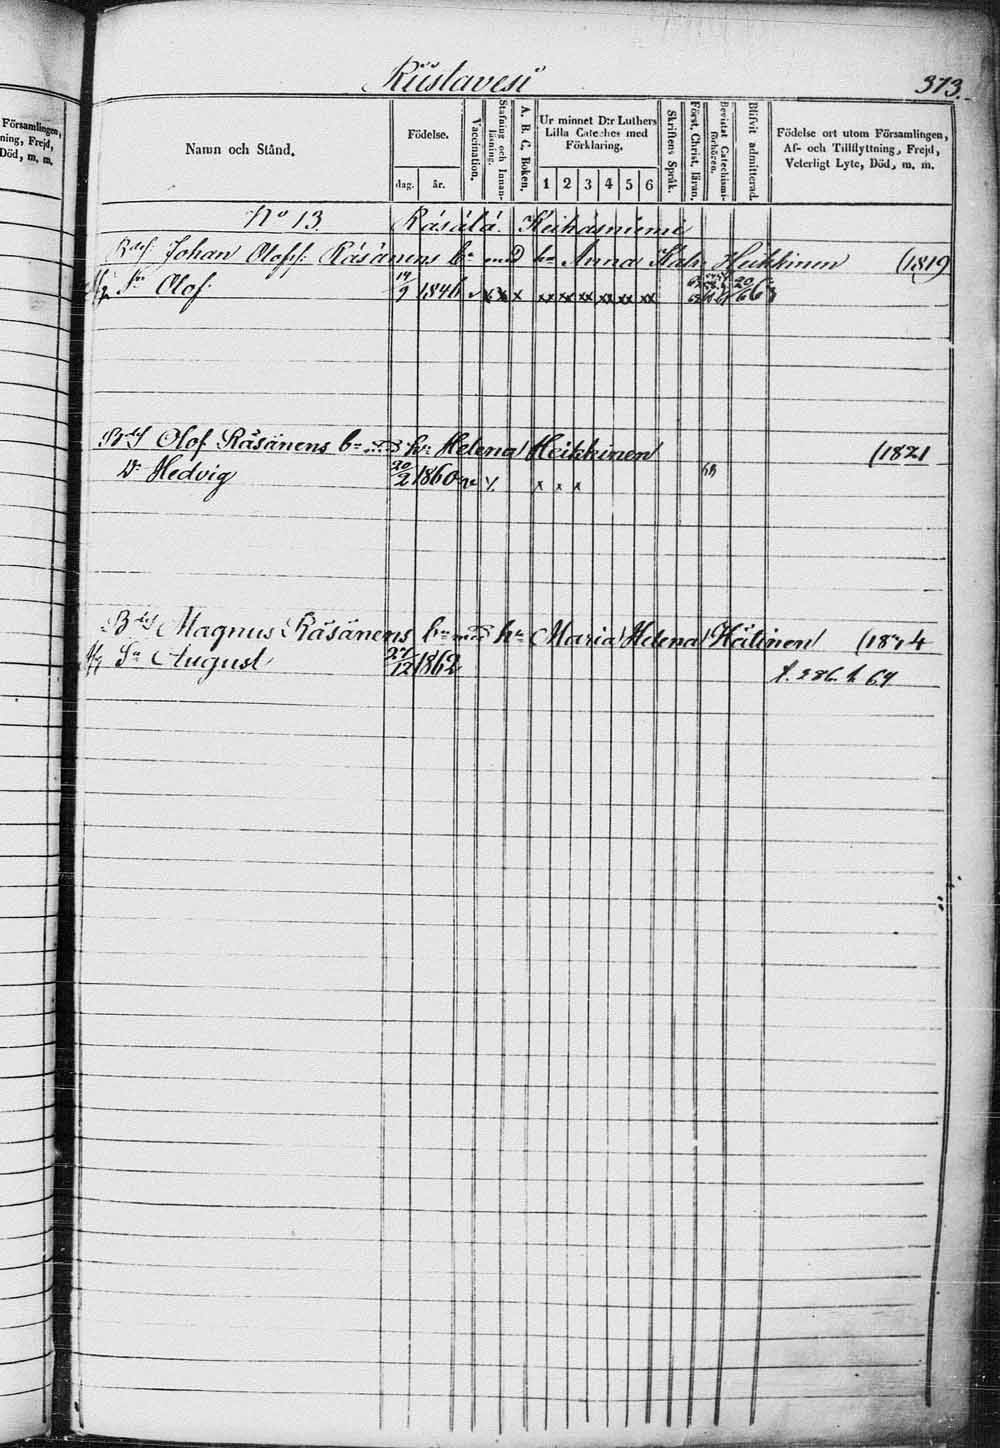 Riistavesi
373.
Församlingen,
ning, Frejd,
Död, m. m.
Namn och Stånd.
Födelse.
dag. år.
Vaccination.
Stafning och Innan-läsning.
A. B. C. Boken.
Ur minnet D:r Luthers Lilla Cateches med Förklaring.
1 2 3 4 5 6
Skriftens Språk.
Först. Christ. läran.
Bevistat Catechismi-förhören.
Blifvit admitterad.
Födelse ort utom Församlingen,
Af- och Tillflyttning, Frejd,
Veterligt Lyte, Död, m. m.
No 13. Räsälä. Keihäsniemi
Johan Olofss. Räsänens bn med hu Anna Kath. Heikkinen (1819
Sn Olof 14/9 1846 x x x x x x x 20 66
Olof Räsänens bn med hu Helena Heikkinen (1821
Dr Hedvig 20/2 1860 x x x
Magnus Räsänens bn med hu Maria Helena Hätinen
Sn August 27/12 1862 f. 286. h 67